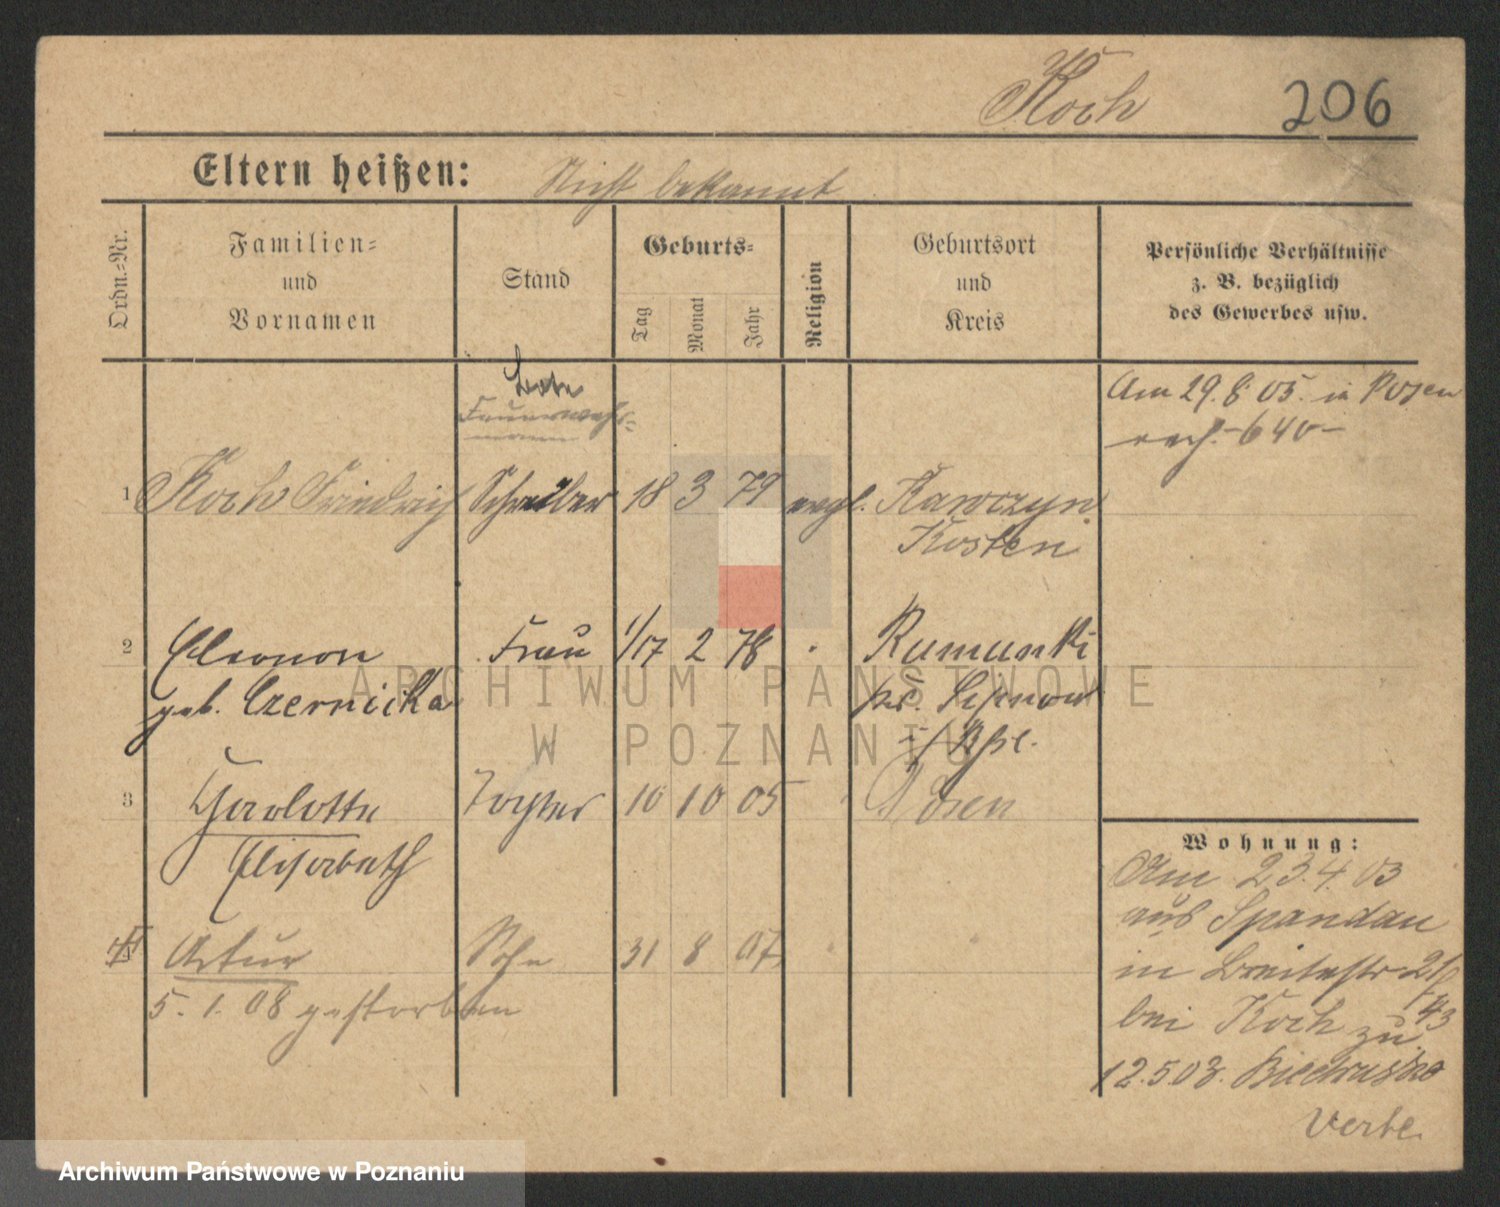 Koch 206
Eltern heißen: Nicht bekannt
Ordn.-Nr.
Familien-
und
Vornamen
Stand
Geburts-
Tag
Monat
Jahr
Religion
Geburtsort
und
Kreis
Persönliche Verhältnisse
z. B. bezüglich
des Gewerbes usw.
Am 29.8.05. in Posen
640
1 Koch Friedrich Schreiber 18 3 79 evgl.
Kosten
2 Eleonore Frau 1/17 2 78 Rumunki
geb. Czernicka
3 Charlotte Tochter 10 10 05 Posen
Elisabeth
Artur Sohn 31 8 07
5. 1. 08 gestorben
Wohnung:
Am 23.4.03
aus Spandau
in Breitestr 21
bei Koch zu
12.5.03. Biedrusko
Verte
ARCHIWUM PAŃSTWOWE
W POZNANIU
Archiwum Państwowe w Poznaniu